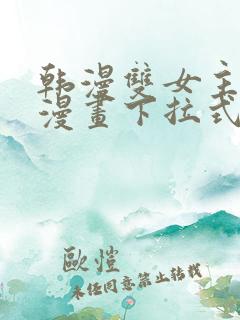 韩漫雙女主
漫畫下拉式
歐愷
未经同意禁止转载